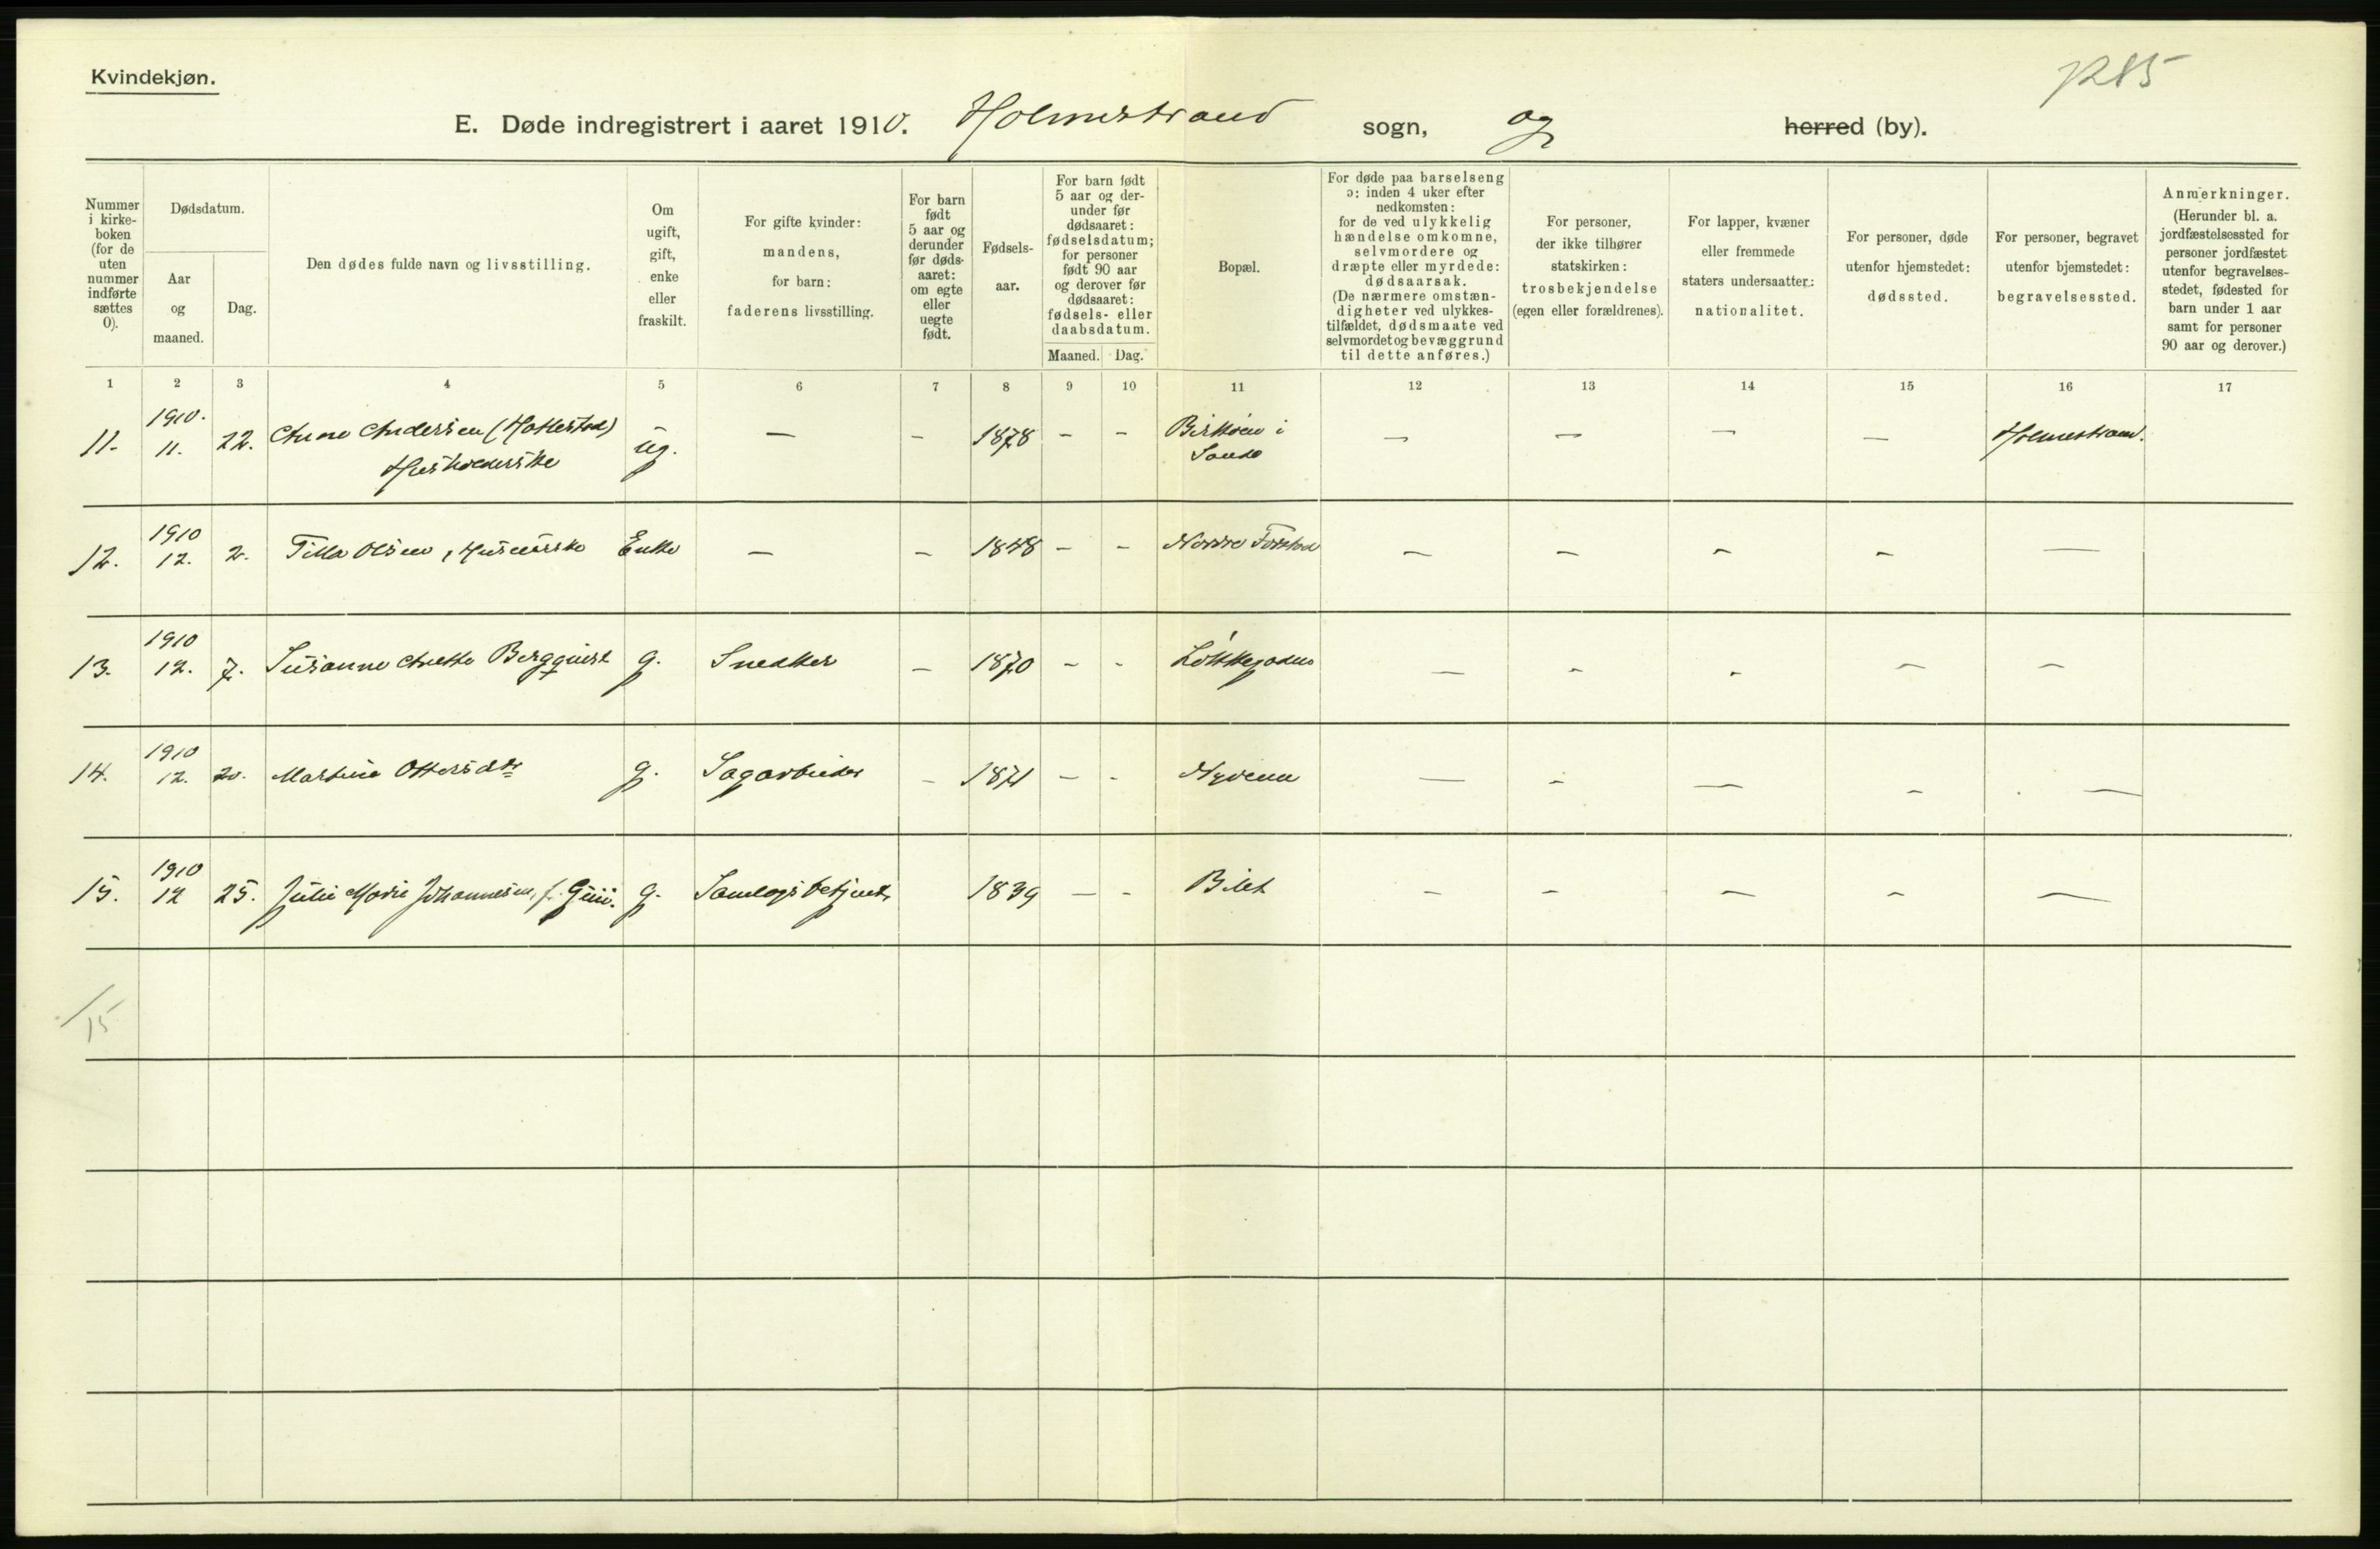 Kvindekjøn.
1285
E. Døde indregistrert i aaret 1910. Holmestrand sogn, og herred (by).
Nummer i kirke-boken (for de uten nummer indførte sættes 0).
Dødsdatum.
Aar og maaned.
Dag.
Den dødes fulde navn og livsstilling.
Om ugift, gift, enke eller fraskilt.
For gifte kvinder: mandens, for barn: faderens livsstilling.
For barn født 5 aar og derunder før døds-aaret: om egte eller uegte født.
Fødsels-aar.
For barn født 5 aar og der-under før dødsaaret: fødselsdatum; for personer født 90 aar og derover før dødsaaret: fødsels- eller daabsdatum.
Maaned. Dag.
Bopæl.
For døde paa barselseng ɔ: inden 4 uker efter nedkomsten: for de ved ulykkelig hændelse omkomne, selvmordere og dræpte eller myrdede: dødsaarsak. (De nærmere omstæn-digheter ved ulykkes-tilfældet, dødsmaate ved selvmordet og bevæggrund til dette anføres.)
For personer, der ikke tilhører statskirken: trosbekjendelse (egen eller forældrenes).
For lapper, kvæner eller fremmede staters undersaatter: nationalitet.
For personer, døde utenfor hjemstedet: dødssted.
For personer, begravet utenfor bjemstedet: begravelsessted.
Anmerkninger. (Herunder bl. a. jordfæstelsessted for personer jordfæstet utenfor begravelses-stedet, fødested for barn under 1 aar samt for personer 90 aar og derover.)
1 2 3 4 5 6 7 8 9 10 11 12 13 14 15 16 17
11. 1910. 11. 22. Anne Andersen ug. — — 1878 — — i Sande — — — — Holmestrand.
Husholderske
12. 1910 12. 2. Tilla Olsen, Enke — — 1848 — — Nordre — — — — —
13. 1910 12. 7. Susanne Anette Bergquist g. Snekker — 1870 — — Løkkegaden — — — — —
14. 1910 12. 20. Martine g. Sagarbeider — 1871 — — Nyveien — — — — —
15. 1910 12 25. Julie Marie Johannesen, f. g. Samlagsbetjent 1839 — — — — — — —
/15